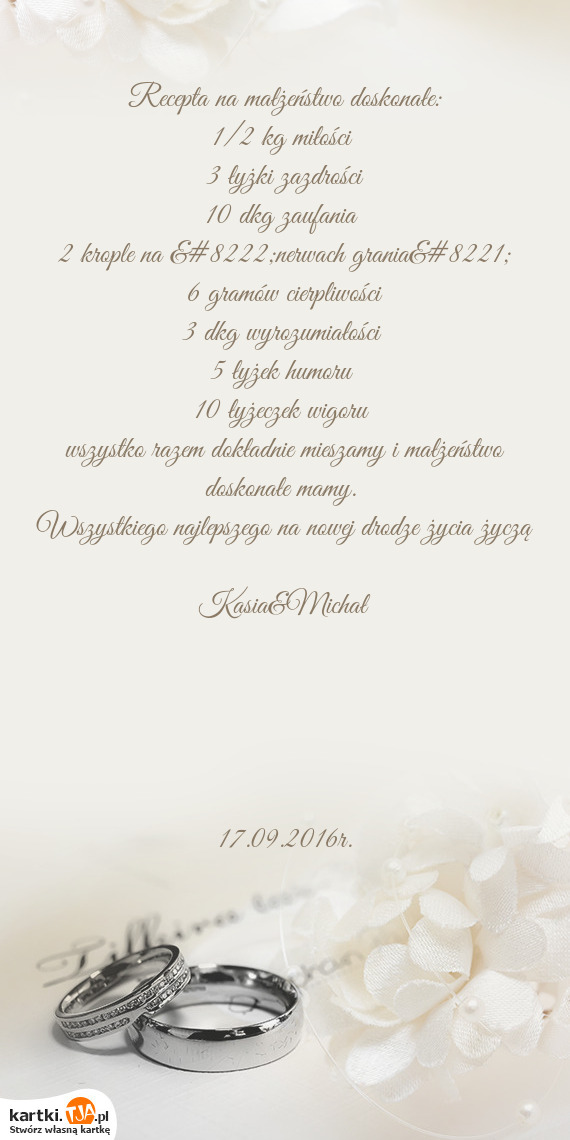 Recepta na małżeństwo doskonałe:
1/2 kg miłości
3 łyżki zazdrości
10 dkg zaufania
2 krople na &#8222;nerwach grania&#8221;
6 gramów cierpliwości
3 dkg wyrozumiałości
5 łyżek humoru
10 łyżeczek wigoru
wszystko razem dokładnie mieszamy i małżeństwo
doskonałe mamy.
Wszystkiego najlepszego na nowej drodze życia życzą
Kasia&Michał
17.09.2016r.
kartki.TJA.pl
Stwórz własną kartkę